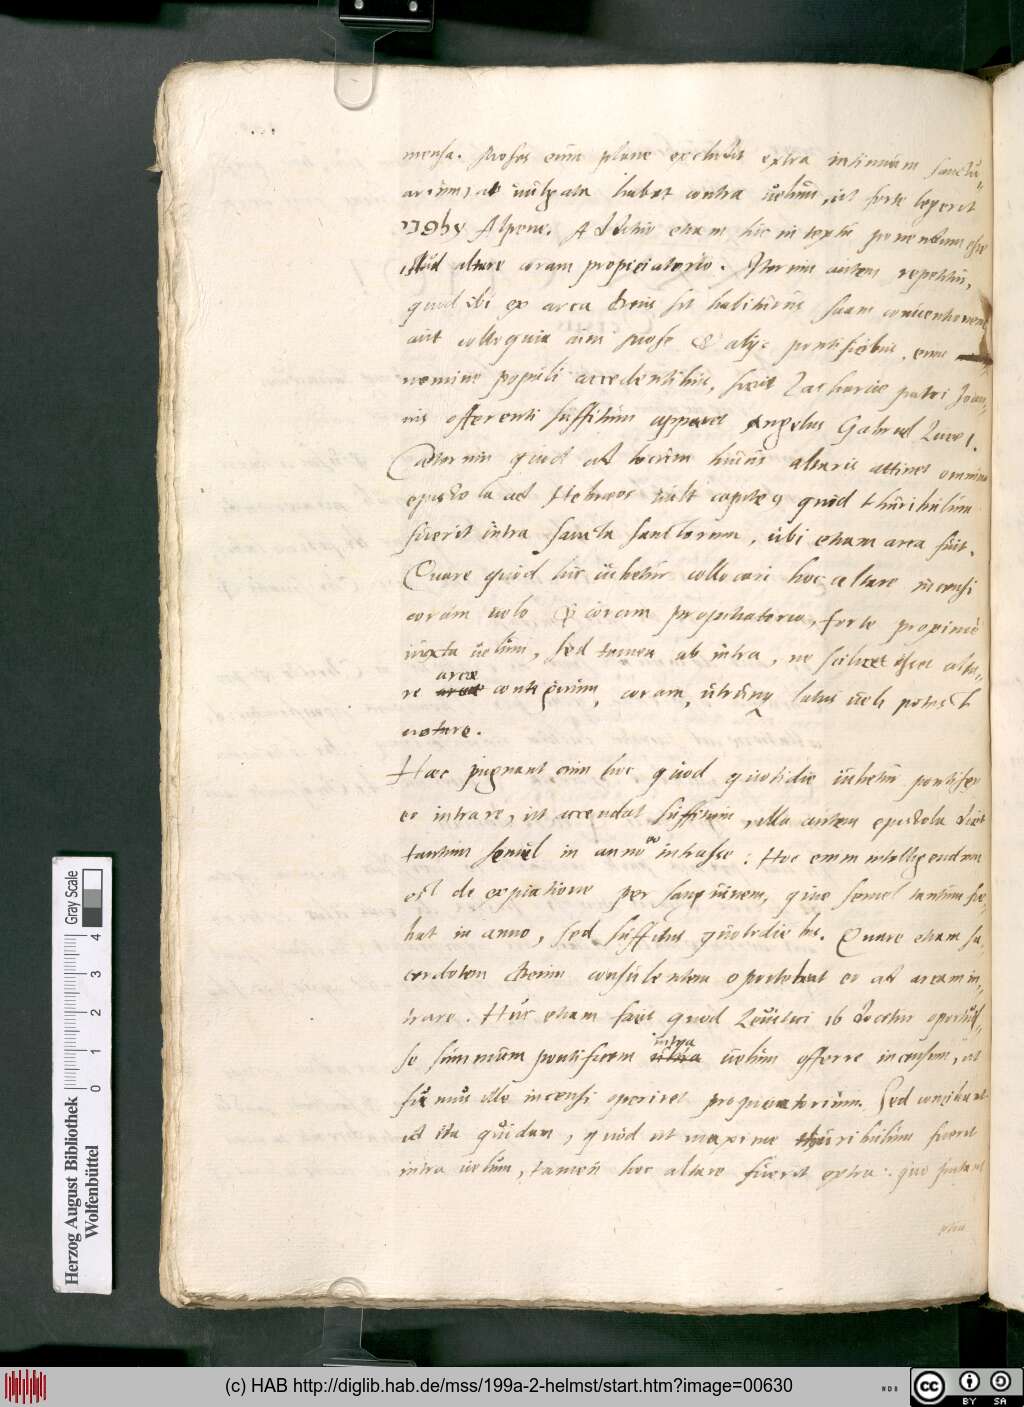 mensa. Moses enim plane excludit extra intimum sanctu-
arium, at vulgata habet contra velum, ut forte legerit
alpene. Additur etiam hic in textu ponendum esse
illud altare coram propiciatorio. Iterum autem repetitur,
quod ibi ex arca Deus sit habiturus suam conventionem
aut colloquia cum Mose & alijs pontificibus, eius
nomine populi accedentibus, sicut Zachariae patri Joan-
nis offerenti suffitum apparet Angelus Gabriel Luce 1.
Caeterum quod ad locum huius altaris attinet omnino
epistola ad Hebraeos vult capite 9 quod thuribulum
fuerit intra sancta sanctorum, ubi etiam arca fuit.
Quare quod hic iubetur collocari hoc altare incensi
coram velo & coram propitiatorio, forte proxime
iuxta velum, sed tamen ab intra, ne scilicet esset alta-
re arcae contiguum, coram, utrumque latus veli potest
notare.
Haec pugnant enim hoc quod quotidie iubetur pontifex
eo intrare, ut accendat suffitum, illa autem epistola dicit
tantum semel in anno eo intrasse: Hoc enim intelligendum
est de expiatione per sanguinem, quae semel tantum fie-
bat in anno, sed suffitus quotidie hic. Quare etiam sa-
cerdotem Deum consulentem oportebat eo ad arcam in-
trare. Huc etiam facit quod Levitici 16 docetur oportuis-
se summum pontificem intra velum offerre incensum, ut
fumus ille incensi operiret propiciatorium. Sed concilia
ut ita quidam, quod ut maxime thuribulum fuerit
intra velum, tamen hoc altare fuerit extra: quo putant
Herzog August Bibliothek
Wolfenbüttel
0 1 2 3 4
Gray Scale
(c) HAB http://diglib.hab.de/mss/199a-2-helmst/start.htm?image=00630
cc BY SA